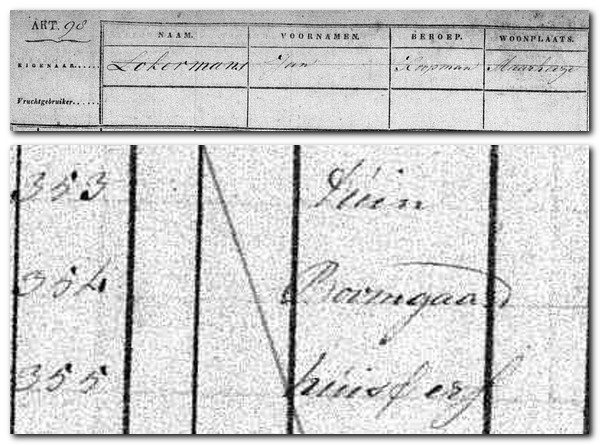 ART. 98
NAAM. VOORNAMEN. BEROEP. WOONPLAATS.
EIGENAAR...... Lokermans Jan Koopman Maasheze
Vruchtgebruiker...
353 tuin
354 Boomgaard
355 huis & erf